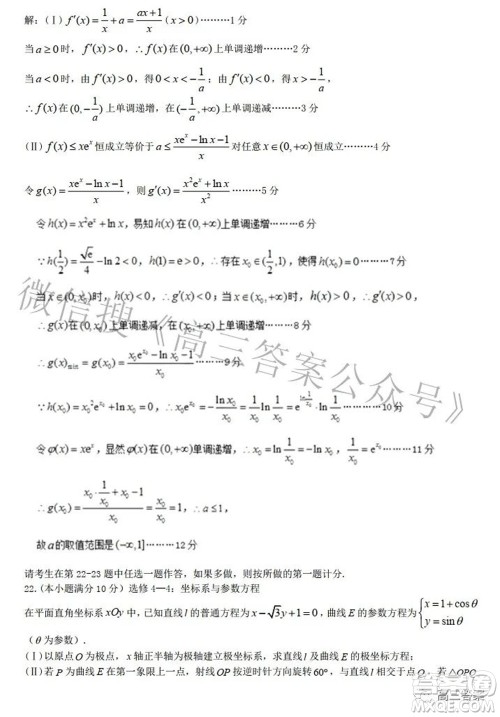 解：(Ⅰ) f'(x)=1/x+a=(ax+1)/x (x>0)………1分
当a≥0时，f'(x)>0，∴f(x)在(0,+∞)上单调递增………2分
当a<0时，由f'(x)>0，得0<x<-1/a；由f'(x)<0，得x>-1/a，
∴f(x)在(0,-1/a)上单调递增，在(-1/a,+∞)上单调递减………3分
(Ⅱ) f(x)≤xe^x恒成立等价于a≤(xe^x-ln x-1)/x对任意x∈(0,+∞)恒成立………4分
令g(x)=(xe^x-ln x-1)/x，则g'(x)=(x²e^x+ln x)/x²………5分
令h(x)=x²e^x+ln x，易知h(x)在(0,+∞)上单调递增………6分
∵h(1/2)=√e/4-ln 2<0，h(1)=e>0，∴存在x₀∈(1/2,1)，使得h(x₀)=0………7分
当x∈(0,x₀)时，h(x)<0，∴g'(x)<0；当x∈(x₀,+∞)时，h(x)>0，∴g'(x)>0，
∴g(x)在(0,x₀)上单调递减，在(x₀,+∞)上单调递增，
∴g(x)min=g(x₀)=(x₀e^x₀-ln x₀-1)/x₀………9分
∵h(x₀)=x₀²e^x₀+ln x₀=0，∴x₀e^x₀=-ln x₀/x₀=1/x₀ ln 1/x₀=e^(ln 1/x₀) ln 1/x₀………10分
令φ(x)=xe^x，显然φ(x)在(0,+∞)单调递增，∴x₀=ln 1/x₀=-ln x₀，1/x₀=e^x₀………11分
∴g(x₀)=(x₀·1/x₀+x₀-1)/x₀=x₀/x₀=1，∴a≤1，
故a的取值范围是(-∞,1]………12分
请考生在第22-23题中任选一题作答，如果多做，则按所做的第一题计分.
22.(本小题满分10分) 选修4—4：坐标系与参数方程
在平面直角坐标系xOy中，已知直线l的普通方程为x-√3y+1=0，曲线E的参数方程为{x=1+cosθ
y=sinθ
(θ为参数).
(Ⅰ)以原点O为极点，x轴正半轴为极轴建立极坐标系，求直线l及曲线E的极坐标方程；
(Ⅱ)若P为曲线E在第一象限上一点，射线OP按逆时针方向旋转60°，与直线l相交于点Q，若△OPQ
微信搜《高三答案公众号》
高三答案